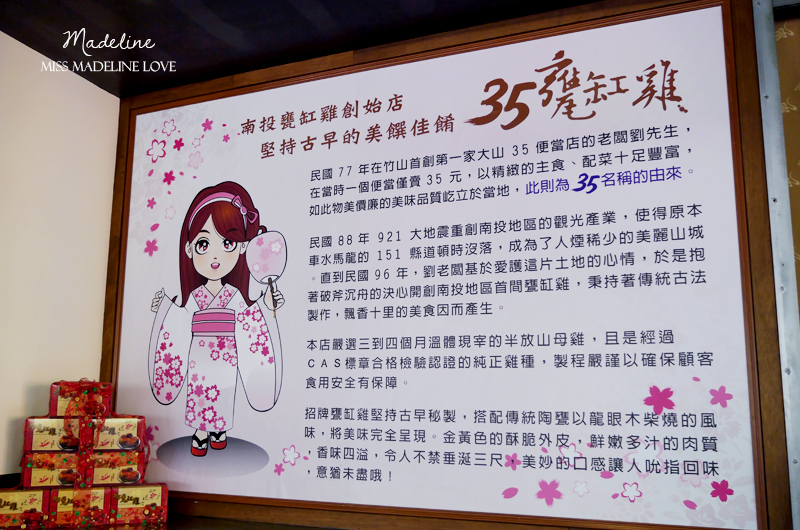 Madeline
MISS MADELINE LOVE
南投甕缸雞創始店
堅持古早的美饌佳餚
35甕缸雞
民國 77 年在竹山首創第一家大山 35 便當店的老闆劉先生，
在當時一個便當僅賣 35 元，以精緻的主食、配菜十足豐富，
如此物美價廉的美味品質屹立於當地，此則為35名稱的由來。
民國 88 年 921 大地震重創南投地區的觀光產業，使得原本
車水馬龍的 151 縣道頓時沒落，成為了人煙稀少的美麗山城
。直到民國 96 年，劉老闆基於愛護這片土地的心情，於是抱
著破斧沉舟的決心開創南投地區首間甕缸雞，秉持著傳統古法
製作，飄香十里的美食因而產生。
本店嚴選三到四個月溫體現宰的半放山母雞，且是經過
CAS標章合格檢驗認證的純正雞種，製程嚴謹以確保顧客
食用安全有保障。
招牌甕缸雞堅持古早秘製，搭配傳統陶甕以龍眼木柴燒的風
味，將美味完全呈現。金黃色的酥脆外皮，鮮嫩多汁的肉質
，香味四溢，令人不禁垂涎三尺，美妙的口感讓人吮指回味
，意猶未盡哦！